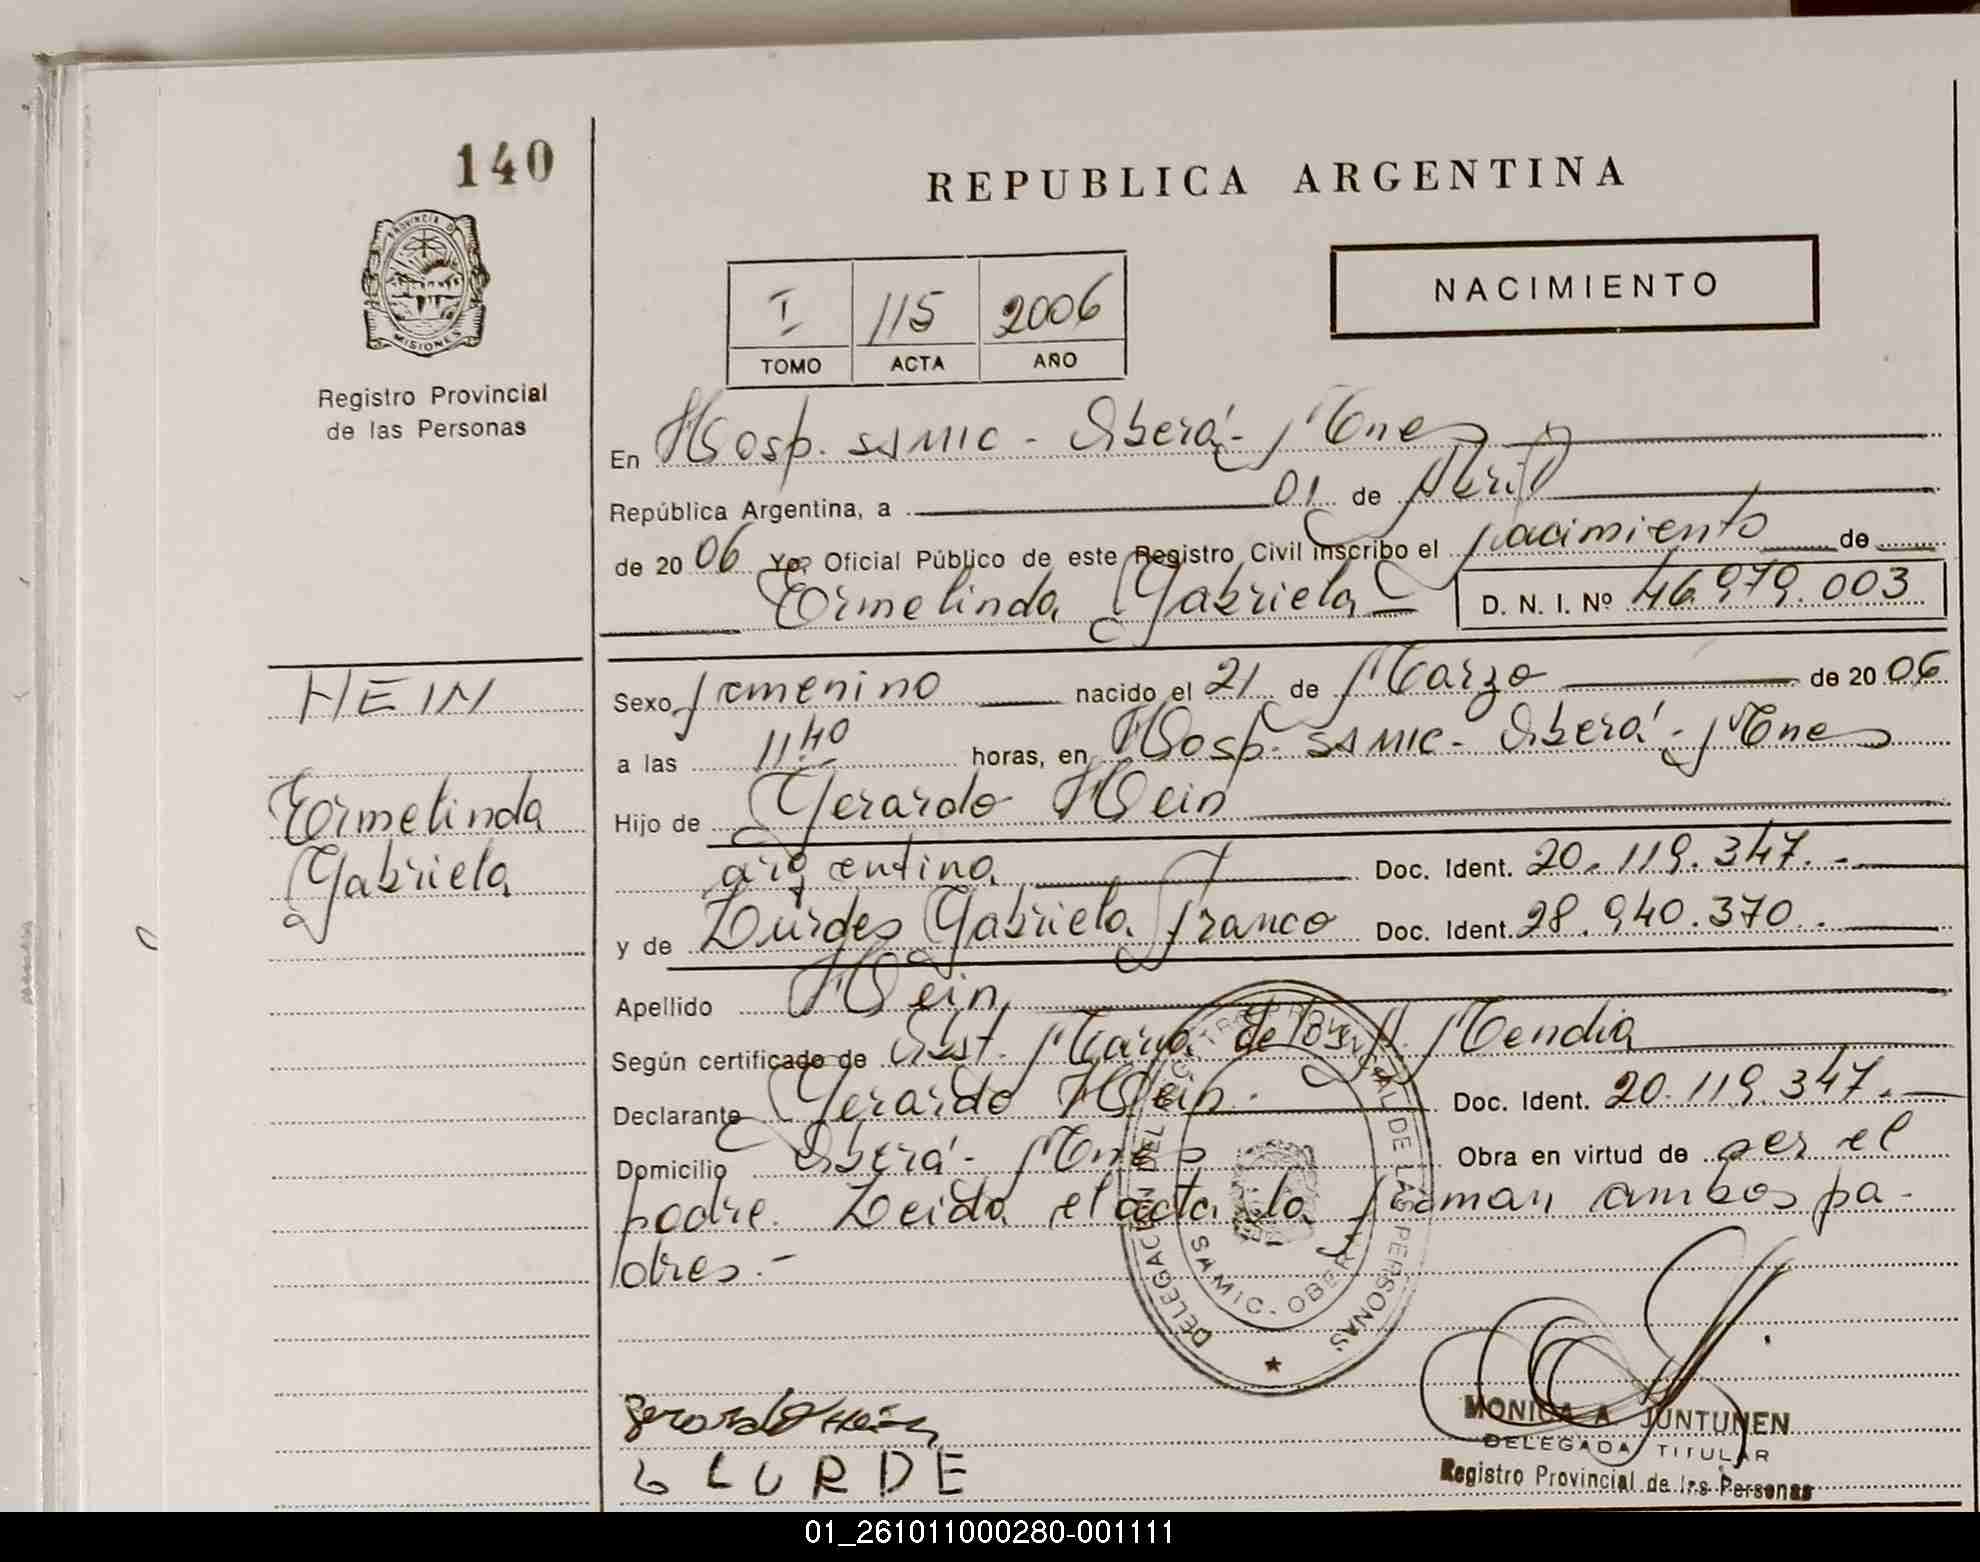 140
REPUBLICA ARGENTINA
PROVINCIA D
MISIONES
Registro Provincial
de las Personas
NACIMIENTO
I 115 2006
TOMO ACTA AÑO
En Hosp. SAMIC - Oberá - Mnes
República Argentina, a 01 de Abril
de 20 06 Yo, Oficial Público de este Registro Civil inscribo el nacimiento de
Ermelinda Gabriela D. N. I. Nº 46.979.003
HEIN
Ermelinda
Gabriela
Sexo femenino nacido el 21 de Marzo de 20 06
a las 11.40 horas, en Hosp. SAMIC - Oberá - Mnes
Hijo de Gerardo Hein
argentina Doc. Ident. 20.119.347.-
y de Lurdes Gabriela Franco Doc. Ident. 28.940.370.
Apellido Hein
Según certificado de Obst. María de los A. Mendia
Declarante Gerardo Hein. Doc. Ident. 20.119.347.-
Domicilio Oberá - Mnes Obra en virtud de ser el
padre. Leida el acta la firman ambos pa-
dres.-
DELEGACION DEL REGISTRO PROVINCIAL DE LAS PERSONAS
SAMIC - OBERA
Gerardo Hein
LURDE
MONICA A JUNTUNEN
DELEGADA TITULAR
Registro Provincial de las Personas
01_261011000280-001111